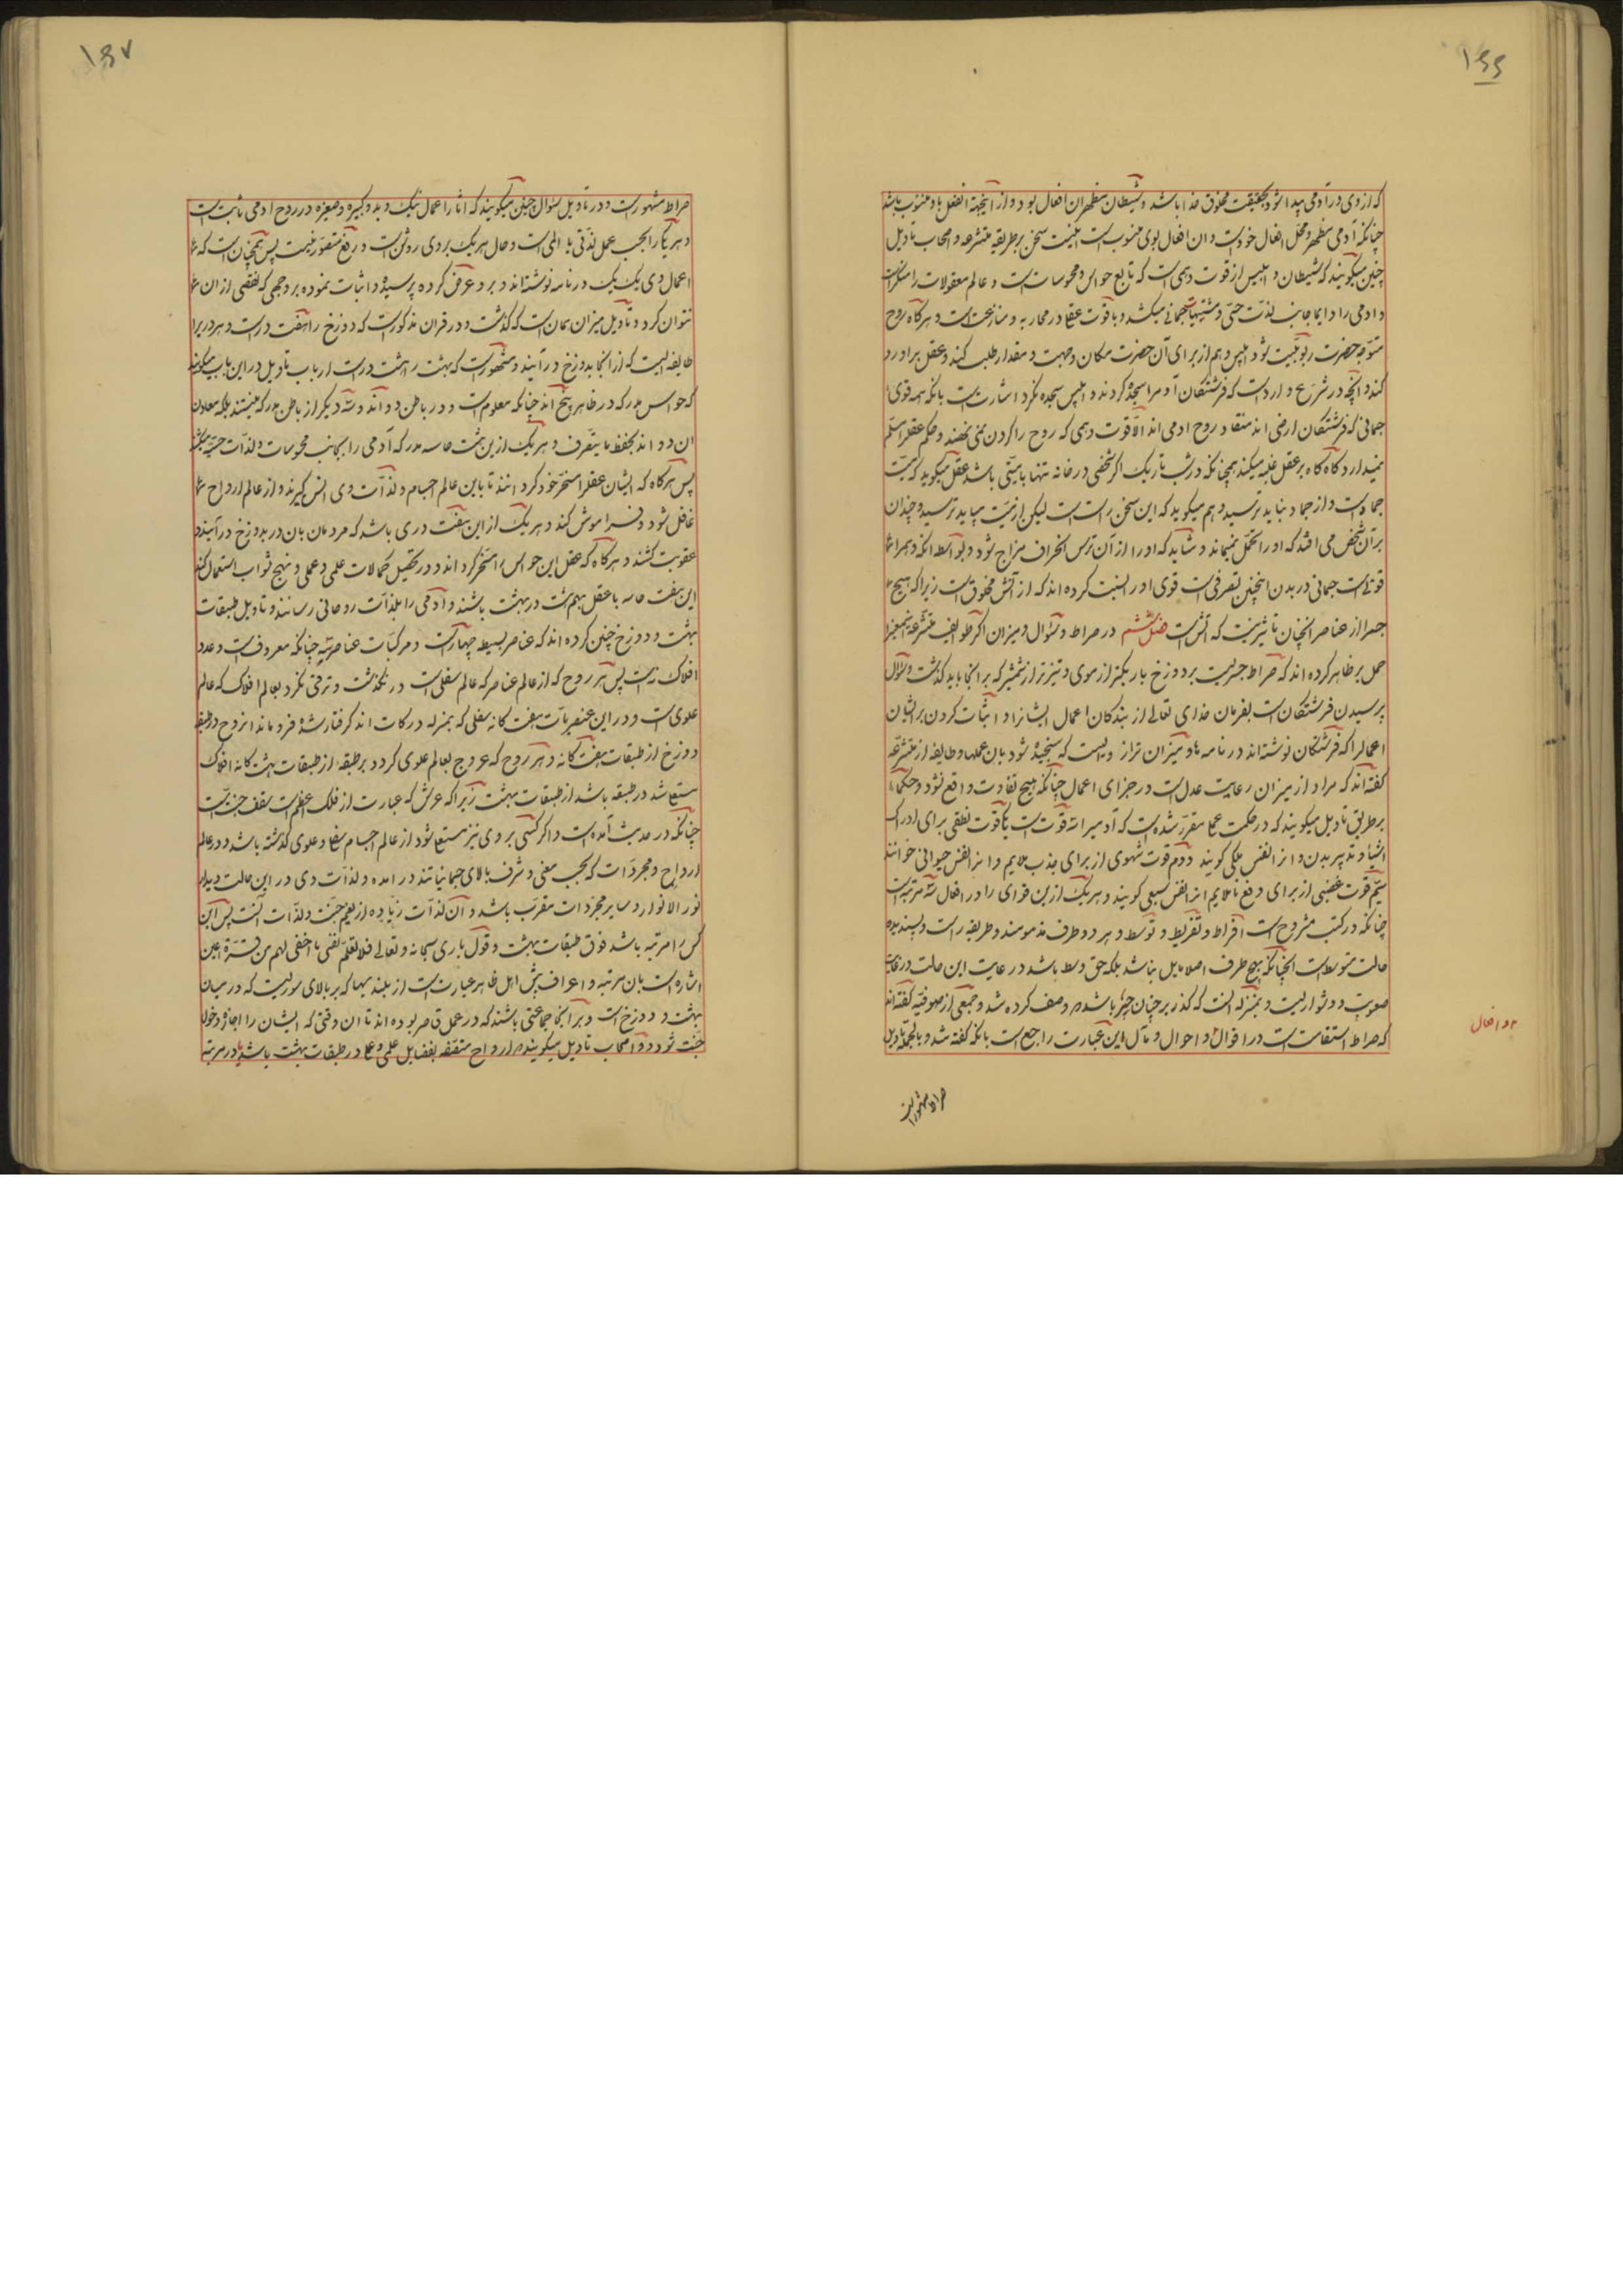 ۱۶۶
که از وی در آدمی پیدا شود بحقیقت مخلوق خدا باشد و شیطان مظهر ان افعال بود و از اینجهة الفعل باو منسوب باشد
چنانکه آدمی مظهر و محل افعال خود است و ان افعال بوی منسوب است اینست سخن بر طریقه متشرعه و اصحاب تاویل
چنین میکویند که شیطان و ابلیس از قوت وهمی است که تابع حواس و محسوسات است و عالم معقولات را منکر است
و ادمی را دایما جانب لذت حسّی و مشتهیات جسمانی میکشد و با قوت عقلی در محاربه و منازعت است و هرکاه روح
متوجه حضرت ربوبیت شود ابلیس وهم از برای آن حضرت مکان و جهت و مقدار طلب کند و عقل بر او رد
کند و انچه در شرع وارد است که فرشتکان آدم را سجده کردند و ابلیس سجده نکرد اشارتست بانکه همه قوی
جسمانی که فرشتکان ارضی اند منقاد روح ادمی اند الّا قوت وهمی که روح را کردن نمی نهند و حکم عقل را مسلم
نمیدارد و کاه کاه بر عقل غلبه میکند همچنانکه در شب تاریک اکر شخصی در خانه تنها با میتی باشد عقل میکوید که میّت
جماد است و از جماد نباید ترسید وهم میکوید که این سخن راست است لیکن از میّت میباید ترسید و چندان
بر آن شخص می افتد که او را تحمّل نمیماند و شاید که او را از آن ترس انحراف مزاج شود و بواسطه انکه وهم را
قوتی است جسمانی و در بدن اینچنین تصرفی است قوی او را نسبت کرده اند که از آتش مخلوق است زیرا که هیچ
جسم را از عناصر انچنان تاثیر نیست که آتش است فصل ششم در صراط و سؤال و میزان اکثر طوایف متشرعه
حمل بر ظاهر کرده اند که صراط جسریست بر دوزخ باریکتر از موی و تیزتر از شمشیر که بر انجا باید کذشت و سؤال
پرسیدن فرشتکان است بفرمان خدای تعالی از بندکان اعمال ایشانرا و اثبات کردن بر ایشان
اعمالرا که فرشتکان نوشته اند در نامه ها و میزان ترازویست که سنجیده شود بان عملها و طایفه از متشرعه
کفته اند که مراد از میزان رعایت عدل است در جزای اعمال چنانکه هیچ تفاوت واقع نشود و حکماء
بر طریق تاویل میکویند که در حکمت عملی مقرر شده است که آدمیرا سه قوت است یکی قوت نطقی برای ادراک
اشیا و تدبیر بدن و انرا نفس ملکی کویند دوم قوت شهوی از برای جذب ملایم و انرا نفس حیوانی خوانند
سیّم قوت غضبی از برای دفع ناملایم انرا نفس سبعی کویند و هر یک ازین قوای را در افعال سه مرتبه است
چنانکه در کتب مشروح است افراط و تفریط و توسط و هر دو طرف مذمومند و طریقه راست و پسندیده
حالت متوسط است انچنانکه بهیچ طرف اصلا مایل نباشد بلکه حق وسط باشد و رعایت این حالت در غایت
صعوبت و دشواریست و بمنزله انست که کذر بر چنان جسر باشد که وصف کرده شد و جمعی از صوفیه کفته اند
که صراط استقامت است در اقوال و احوال و مآل این عبارت راجع است بانکه کفته شد و بالجمله تاویل
و افعال
صراط مشهور است
۱۶۷
صراط مشهور است و در تاویل سؤال چنین میکویند که اثار اعمال نیک و بد و کبیره و صغیره در روح ادمی ثابت است
و هر یک را بحسب عمل لذّتی یا المی است و حال هر یک بر وی روشن است و رفع متصور نیست پس همچنان است که
اعمال وی یک یک در نامه نوشته اند و بر وی عرض کرده پرسیده و اثبات نموده بر وجهی که نقضی از ان
نتوان کرد و تاویل میزان همان است که کذشت و در قران مذکور است که دوزخ را هفت در است و هر در یرا
طایفه ایست که از انجا بدوزخ در آیند و مشهور است که بهشت را هشت در است ارباب تاویل در این باب میکویند
که حواس مدرکه در ظاهر پنج اند چنانکه معلوم است و در باطن دو اند و سه دیکر از باطن مدرکه نیستند بلکه معاون
ان دو اند بحفظ یا بتصرف و هر یک ازین هشت حاسه مدرکه آدمی را بجانب محسوسات و لذّات حسّیه میکشند
پس هرکاه که ایشان عقل را مسخّر خود کردانند تا باین عالم اجسام و لذّات وی انس کیرند و از عالم ارواح
غافل شود و فراموش کند و هر یک از این هفت دری باشد که مردمان بان در بدوزخ درآیند و
عقوبت کشند و هرکاه که عقل این حواس را مسخّر کرداند و در تحصیل کمالات علمی و عملی و نهج ثواب استعمال کند
این هفت حاسه با عقل بهم هشت در بهشت باشند و آدمی را بلذّات روحانی رسانند و تاویل طبقات
بهشت و دوزخ چنین کرده اند که عناصر بسیطه چهار است و مرکبات عناصر سه چنانکه معروف است و عدد
افلاک نه است پس هر روح که از عالم عناصر که عالم سفلی است در نکذشت و ترقی نکرد بعالم افلاک که عالم
علوی است و در این عنصریات هفت کانه سفلی که بمنزله درکات اند کرفتار شده فرو ماند انروح در طبقه
دوزخ از طبقات هفت کانه و هر روح که عروج بعالم علوی کرد و بر طبقه از طبقات هشت کانه افلاک
مستعلی شد در طبقه باشد از طبقات بهشت زیرا که عرش که عبارت از فلک اعظم است سقف جنت است
چنانکه در حدیث آمده است و اکر کسی بر وی نیز مستعلی شود از عالم اجسام سفلی و علوی کذشته باشد و در عالم
ارواح و مجردات که بحسب معنی و شرف بالای جسمانیاتند در امده و لذّات وی در این حالت دیدار
نور الانوار و سایر مجردات مقرب باشد و آن لذّات زیاده از نعیم جنّت و لذّات انست پس این
کس را مرتبه باشد فوق طبقات بهشت و قول باری سبحانه و تعالی فلا تعلم نفس ما اخفی لهم من قرّة اعین
اشاره است بان مرتبه و اعراف پیش اهل ظاهر عبارت است از بلندیها که بر بالای سوریست که در میان
بهشت و دوزخ است و بر انجا جماعتی باشند که در عمل قاصر بوده اند تا ان وقتی که ایشان را اجازه دخول
جنّت شود و اصحاب تاویل میکویند ارواح متصفه بفضایل علمی و عملی در طبقات بهشت باشد یا در مرتبه